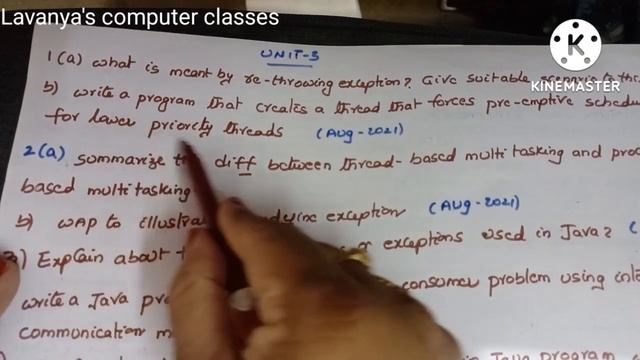 Lavanya's computer classes
UNIT-3
KINEMASTER
1(a) what is meant by re-throwing exception? Give suitable scenario to
b) write a program that creates a thread that forces pre-emptive
for lower priority threads (Aug-2021)
2(a) summarize diff between thread-based multi tasking and
based multi tasking
b) WAP to exception (Aug-2021)
3) Explain about exceptions used in Java? (
write a Java consumer problem using
communication
in Java program